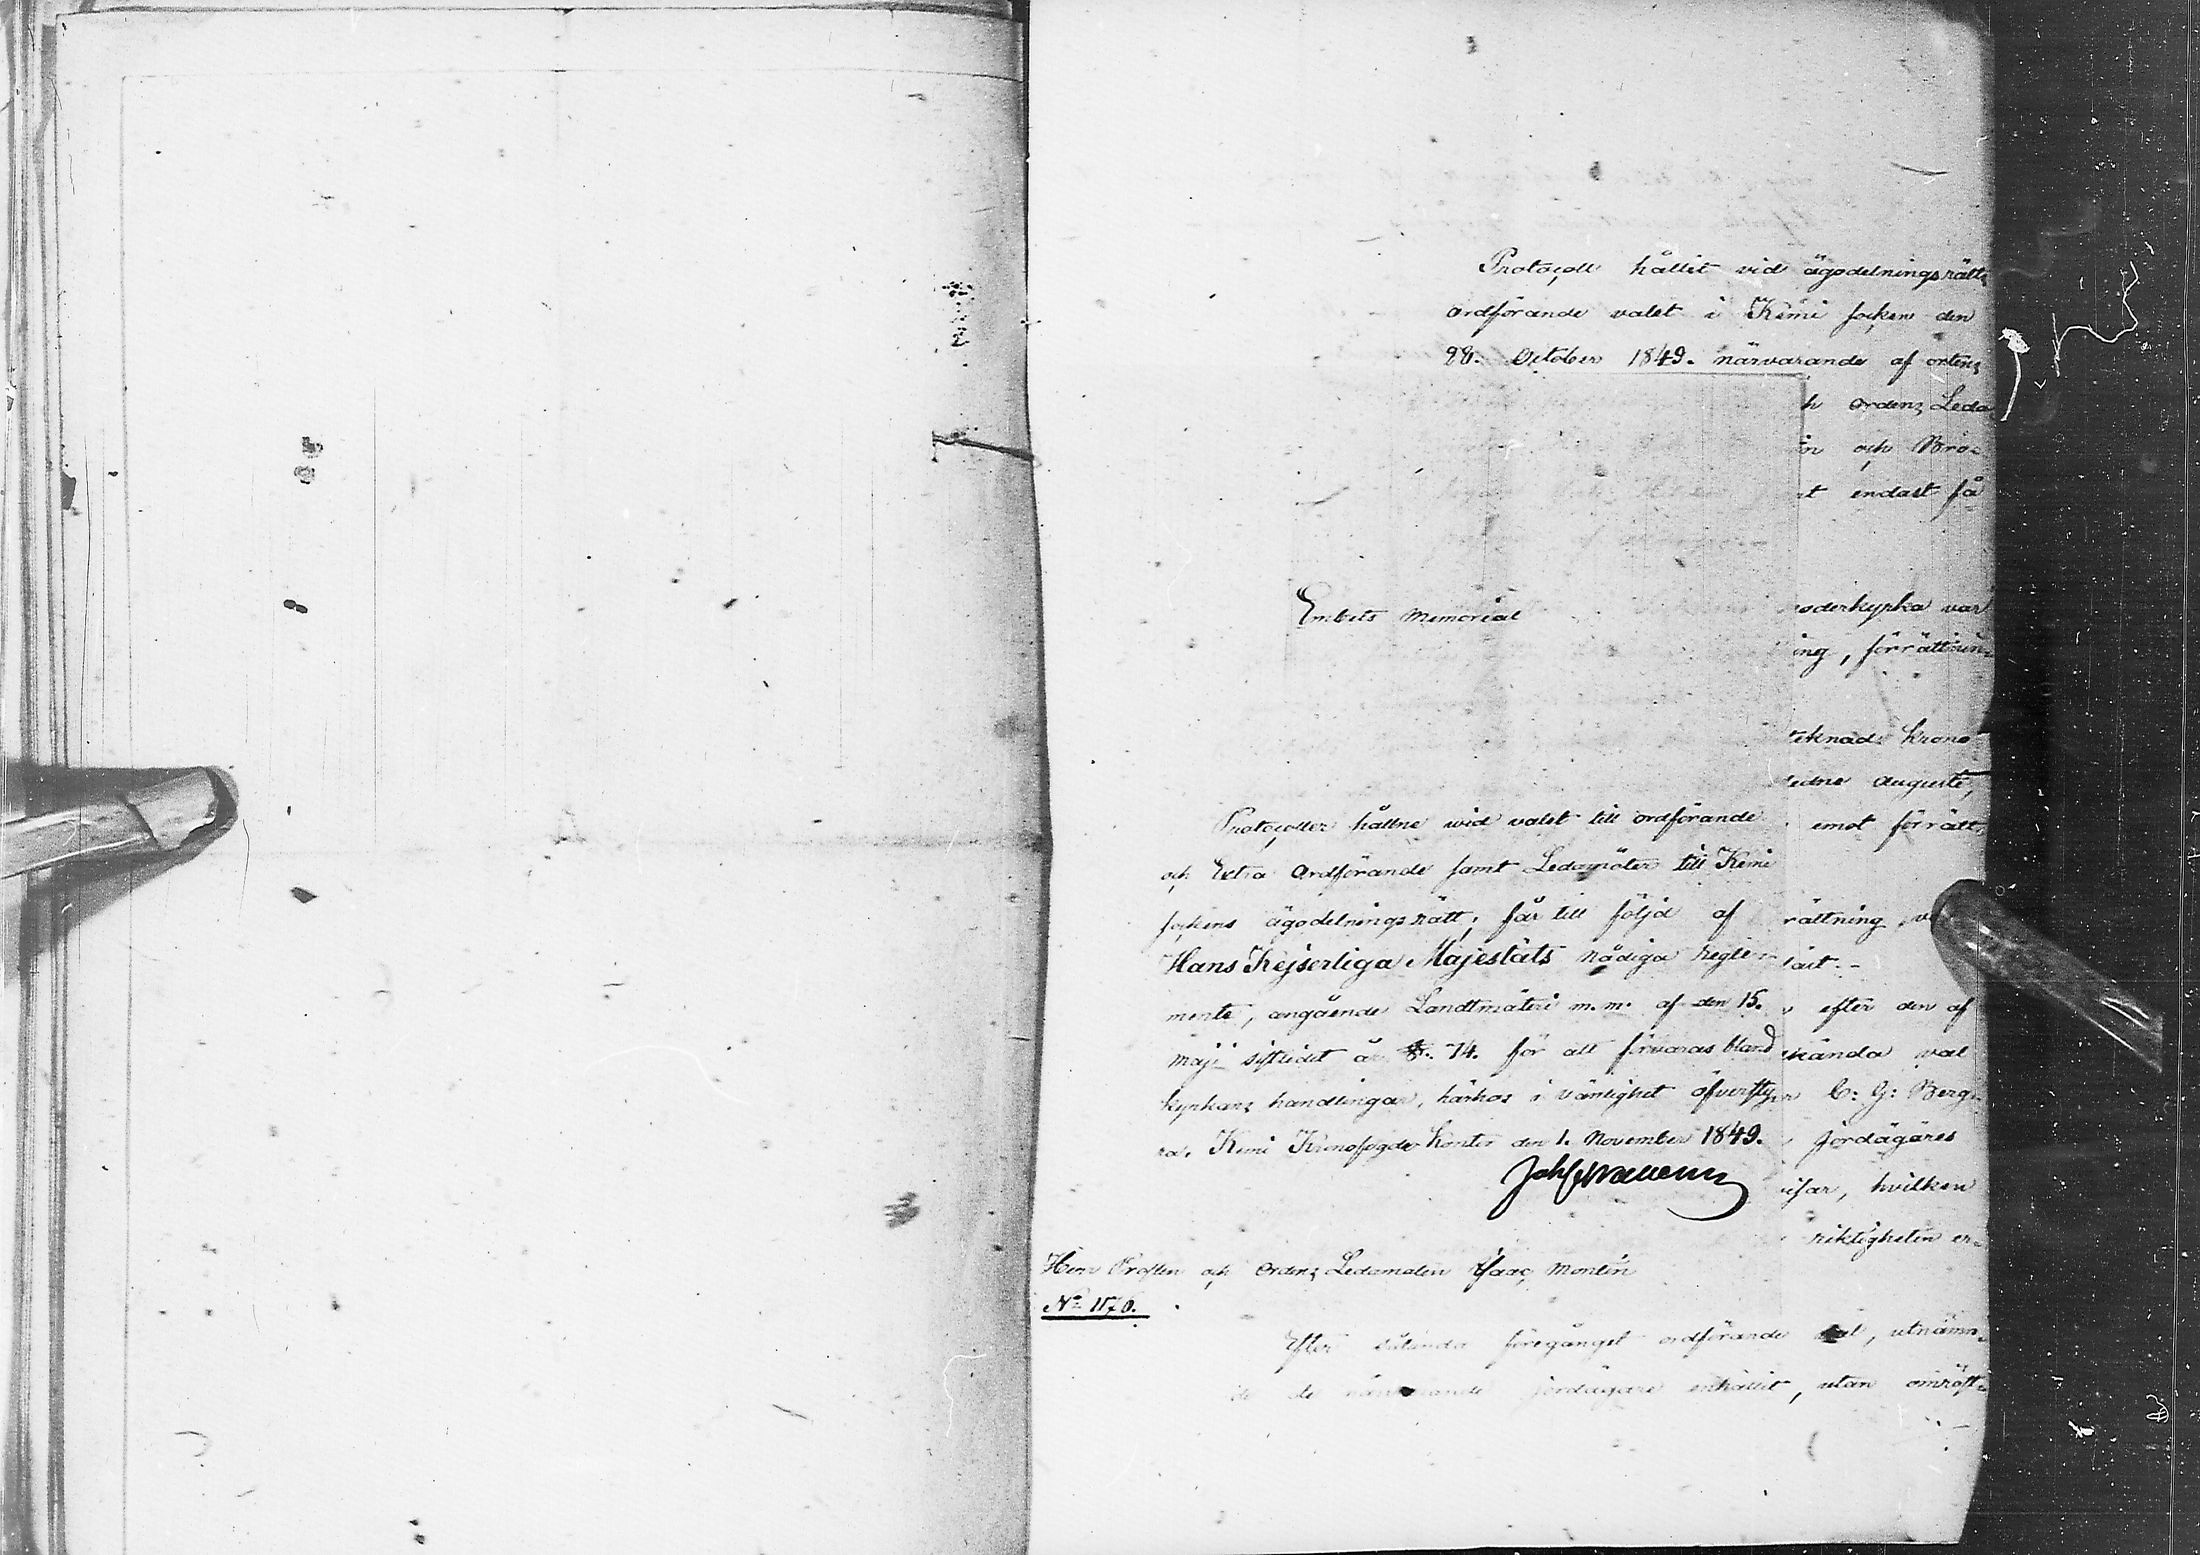 Protocoll hållit vid ägodelningsrätts
ordförande valet i Kemi socken den
28. October 1849. närvarande af ortens
h ordens Leda
och Bro-
t endast få
Embets Memorial
oderkyrka var
ing, förrättnin-
teknade Krono
ledne augusti,
emot förrätt-
Protocoller hållne wid valet till ordförande
och Extra Ordförande samt Ledamöter till Kemi
sockens ägodelningsrätt; får till följd af
rättning
Hans Kejserliga Majestäts nådiga regle-
lärt.-
mente, angående Landtmäteri m.m. af den 15.
efter den af
maji sistledit år §. 74. för att förvaras bland
kända val
kyrkans handlingar, härhos i vänlighet öfversty-
C: G: Berg-
ra. Kemi Kronofogde kontor den 1. November 1849.
jordägares
isar, hvilken
riktigheten er-
Herr Prosten och Ordens Ledamoten Isaac Montin
No 1176.
Efter sålunda föregånget ordförande val, utnämn-
de de närvarande jordägare enhälligt, utan omröst-